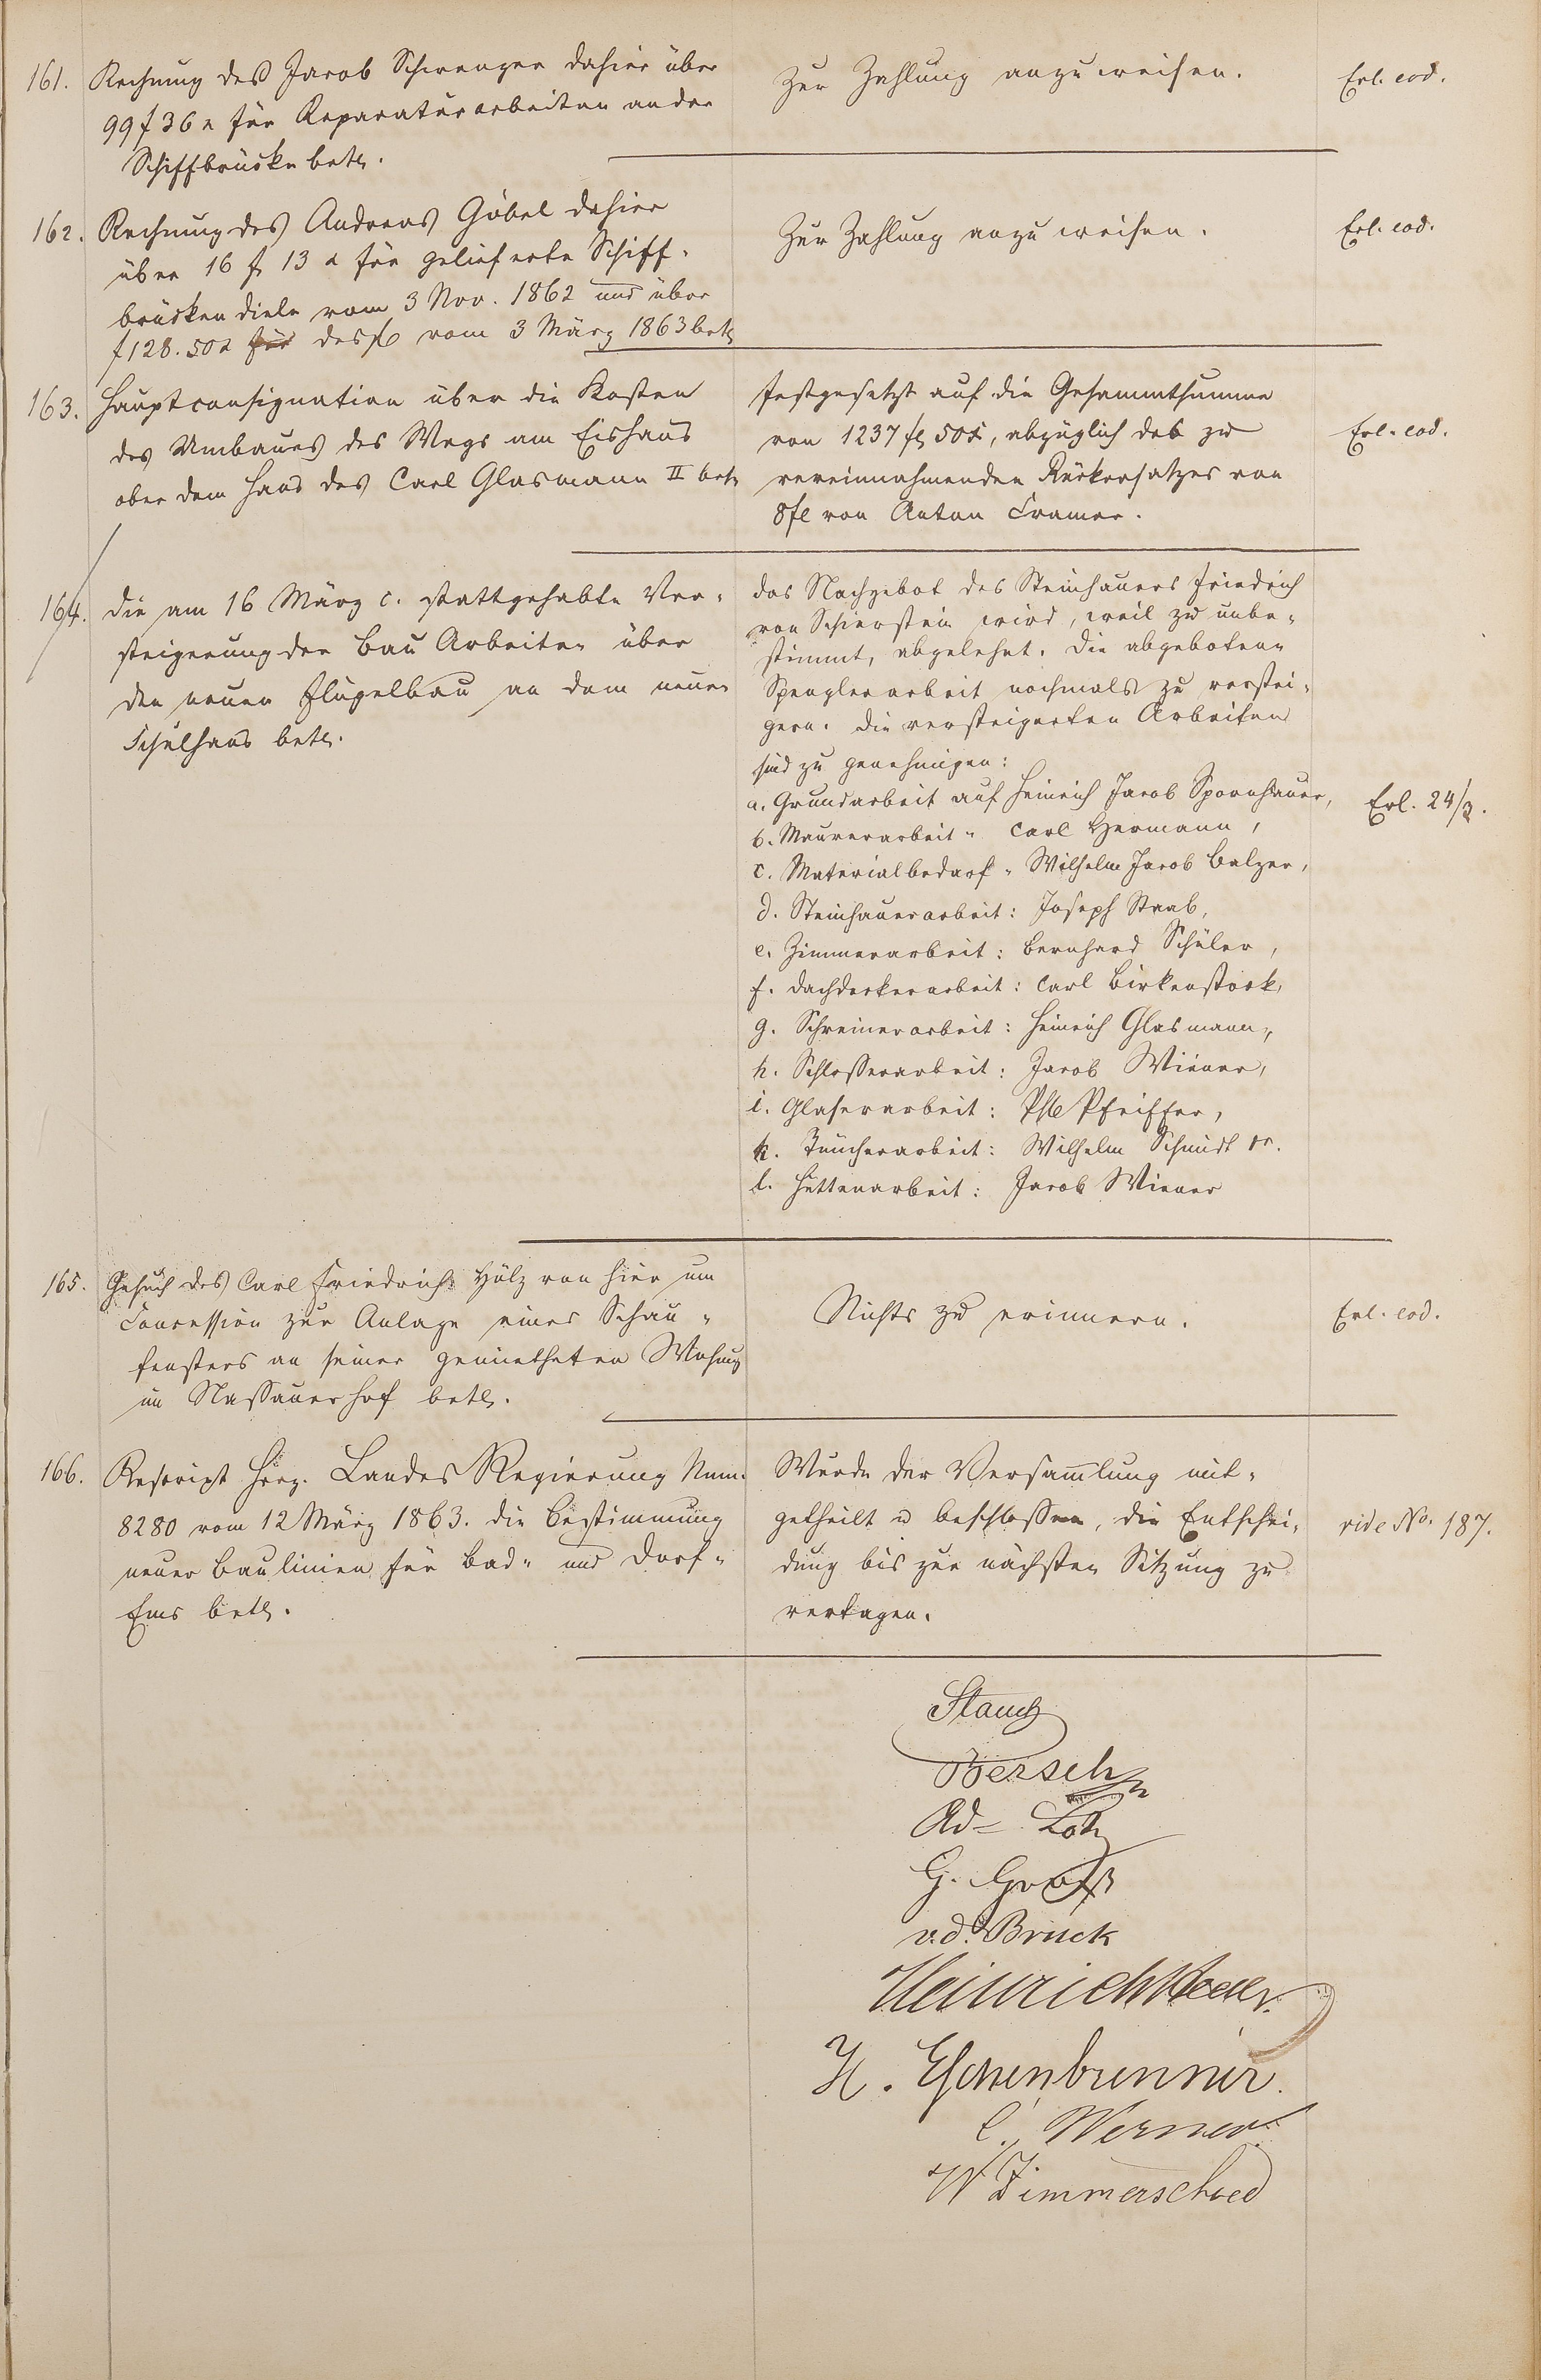 161. Rechnung des Jacob Schwenger dahier über
99 f 36 x für Reparaturarbeiten an der
Schiffbrücke betr.
Zur Zahlung anzuweisen.
Erl. eod.
162. Rechnung des Andreas Göbel dahier
über 16 f. 13 x für gelieferte Schiff-
brückendiele vom 3 Nov. 1862 und über
f 128. 50 x für desgl vom 3 März 1863 betr
Zur Zahlung anzuweisen.
Erl. eod.
163. Hauptconsignation über die Kosten
des Umbaues des Wegs am Eishaus
ober dem Haus des Carl Glasmann II betr
Festgesetzt auf die Gesammtsumme
von 1237 fl 50 x, abzüglich des zu
vereinnahmenden Rückersatzes von
8 fl von Anton Cramer.
Erl. eod.
164. Die am 16 März c. stattgehabte Ver-
steigerung der Bau Arbeiten über
den neuen Flügelbau an dem neuen
Schulhaus betr.
Das Nachgebot des Steinhauers Friedrich
von Schierstein wird, weil zu unbe-
stimmt, abgelehnt. Die abgebotene
Spenglerarbeit nochmals zu verstei-
gern. Die versteigerten Arbeiten
sind zu genehmigen:
a. Grundarbeit auf Heinrich Jacob Spornhauer,
b. Maurerarbeit " Carl Hermann,
c. Materialbedarf " Wilhelm Jacob Balzer,
d. Steinhauerarbeit: Joseph Staab,
e. Zimmerarbeit: Bernhard Schüler,
f. Dachdeckerarbeit: Carl Birkenstock,
g. Schreinerarbeit: Heinrich Glasmann,
h. Schlosserarbeit: Jacob Wiener,
i. Glaserarbeit: Phil Pfeiffer,
k. Tüncherarbeit: Wilhelm Schmidt sr.
l. Hüttenarbeit: Jacob Wiener
Erl. 24/3.
165. Gesuch des Carl Friedrich Hölz von hier um
Concession zur Anlage eines Schau-
fensters an seiner gemietheten Wohnung
im Nassauer Hof betr.
Nichts zu erinnern.
Erl. eod.
166. Rescript Herz. Landes Regierung Num.
8280 vom 12 März 1863. die Bestimmung
neuer Baulinien für Bad- und Dorf-
Ems betr.
Wurde der Versammlung mit-
getheilt u beschlossen, die Entschei-
dung bis zur nächsten Sitzung zu
vertagen.
vide No. 187.
Stauch
Bersch
Ad= Lotz
G. Groß
v.d. Bruck
Heinrich
H. Eschenbrenner.
C. Werner
W Zimmerschied